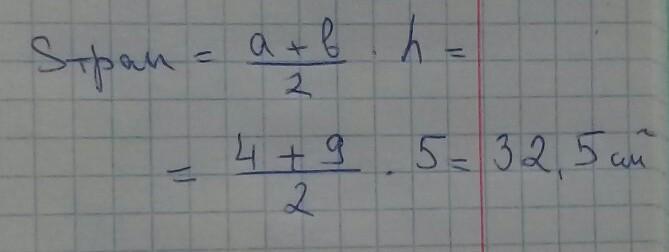 Sтрап = a + b / 2 · h =
= 4 + 9 / 2 · 5 = 32,5 см²